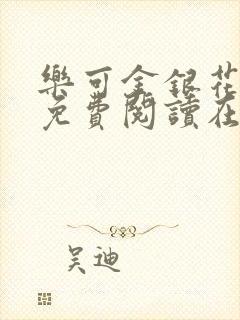 樂可金銀花
免費閱讀在
吴迪